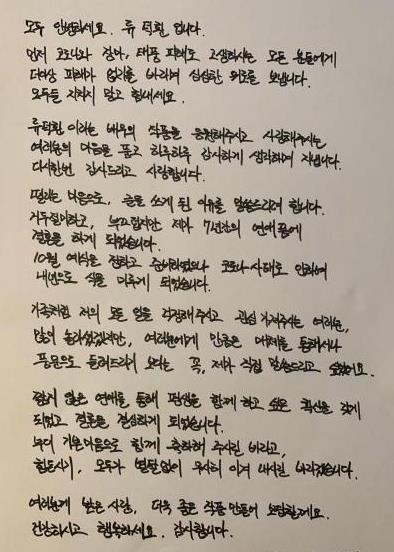 모두 안녕하세요. 류덕환 입니다.
먼저 코로나와 장마, 태풍 피해로 고생하시는 모든 분들에게
더이상 피해가 없기를 바라며 심심한 위로를 보냅니다.
모두들 지치지 말고 힘내세요.
류덕환 이라는 배우의 작품을 응원해주시고 사랑해주시는
여러분의 마음을 품고 하루하루 감사하게 생각하며 지냅니다.
다시한번 감사드리고 사랑합니다.
떨리는 마음으로, 글을 쓰게 된 이유를 말씀드리려 합니다.
거두절미하고, 부끄럽지만 제가 7년간의 연애 끝에
결혼을 하게 되었습니다.
10월 예식을 정하고 준비하였으나 코로나 사태로 인하여
내년으로 식을 미루게 되었습니다.
가족처럼 저의 모든 일을 걱정해주시고 관심 가져주시는 여러분,
많이 놀라셨겠지만, 여러분에게 만큼은 매체를 통해서나
풍문으로 들려드리기 보다는 꼭, 제가 직접 말씀드리고 싶었어요.
짧지 않은 연애를 통해 평생을 함께 하고 싶은 확신을 갖게
되었고 결혼을 결심하게 되었습니다.
부디 기쁜마음으로 함께 축하해 주시길 바라고,
힘든시기, 모두가 별탈없이 무사히 이겨 내시길 바라겠습니다.
여러분께 받은 사랑, 더욱 좋은 작품 만들어 보답할게요.
건강하시고 행복하세요. 감사합니다.